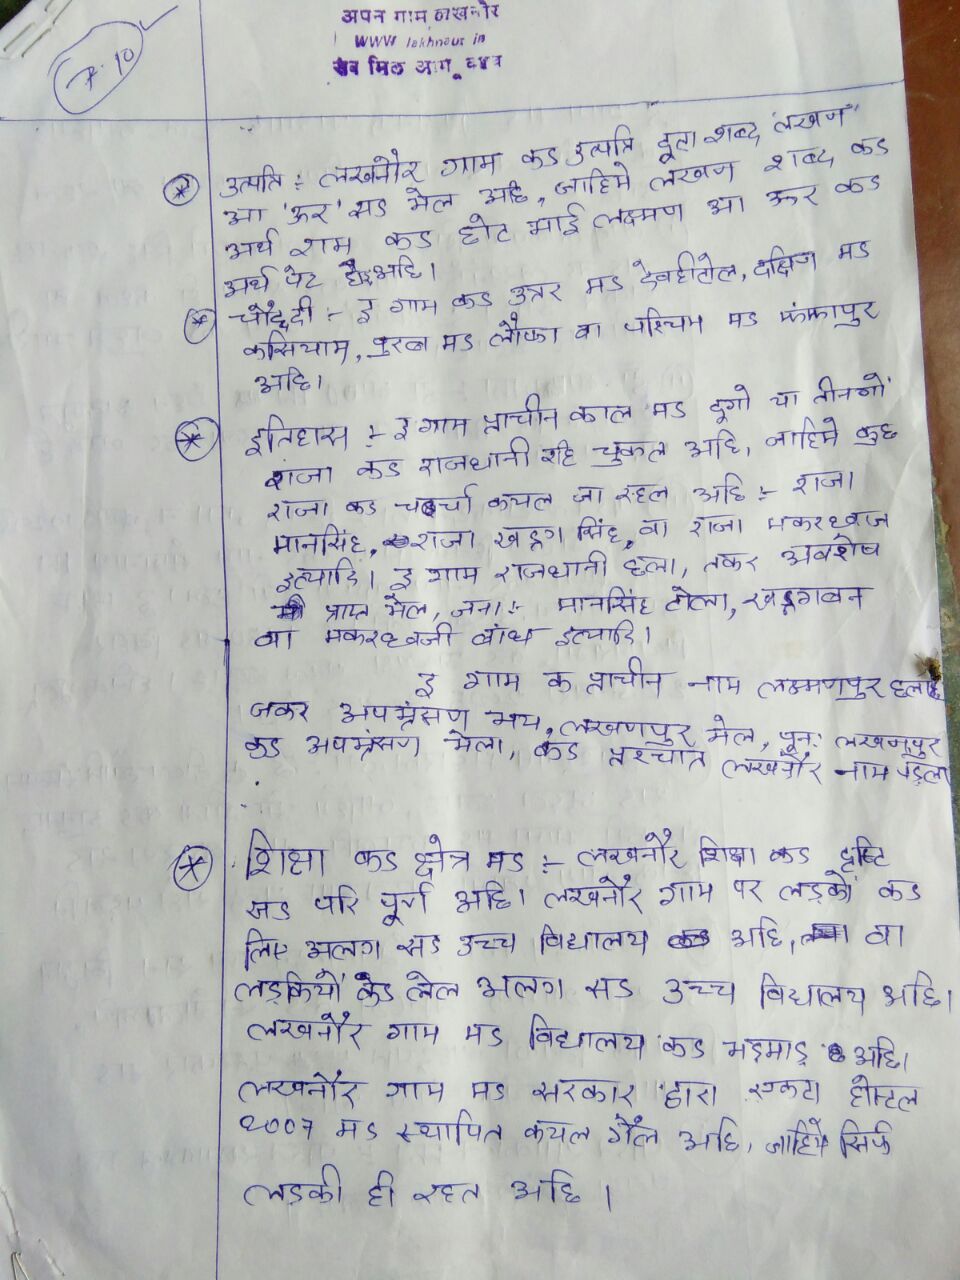 P. 10
अपन गाम लखनौर
WWW lakhnaur in
सब मिल आगू बढब
उत्पति :- लखनौर गाम कड उत्पति दूटा शब्द 'लखण'
आ 'ऊर' सड भेल अछि, जाहिमे लखण शब्द कड
अर्थ राम कड छोट भाई लक्ष्मण आ ऊर कड
अर्थ पेट अछि।
चौद्ददी :- इ गाम कड उत्तर मड देवहीटोल, दक्षिण मड
कसियाम, पुरब मड लौफा वा पश्चिम मड
अछि।
इतिहास :- इ गाम प्राचीन काल मड दूगो या तीनगो
राजा कड राजधानी रहि चुकल अछि, जाहिमे कुछ
राजा कड चर्चा कयल जा रहल अछि :- राजा
मानसिंह, राजा खड्ग सिंह, वा राजा मकरध्वज
इत्यादि। इ गाम राजधानी छला, तकर अवशेष
प्राप्त भेल, जेना :- मानसिंह टोला, खड्गबन
वा मकरध्वजी बांध इत्यादि।
इ गाम क प्राचीन नाम लक्ष्मणपुर छला
जकर अपभ्रंसण भय, लखणपुर भेल, पून: लखणपुर
कड अपभ्रंसण भेला, कड प्रश्चात लखनौर नाम पड़ला
शिक्षा कड क्षेत्र मड :- लखनौर शिक्षा कड दृष्टि
सड परि पूर्ण अछि। लखनौर गाम पर लड़कों कड
लिए अलग सड उच्च विद्यालय अछि, वा
लड़कियों कड लेल अलग सड उच्च विद्यालय अछि।
लखनौर गाम मड विद्यालय कड भड़माड़ अछि।
लखनौर गाम मड सरकार द्वारा एकटा होस्टल
2007 मड स्थापित कयल गेल अछि, जाहिमे सिर्फ
लड़की ही रहत अछि।